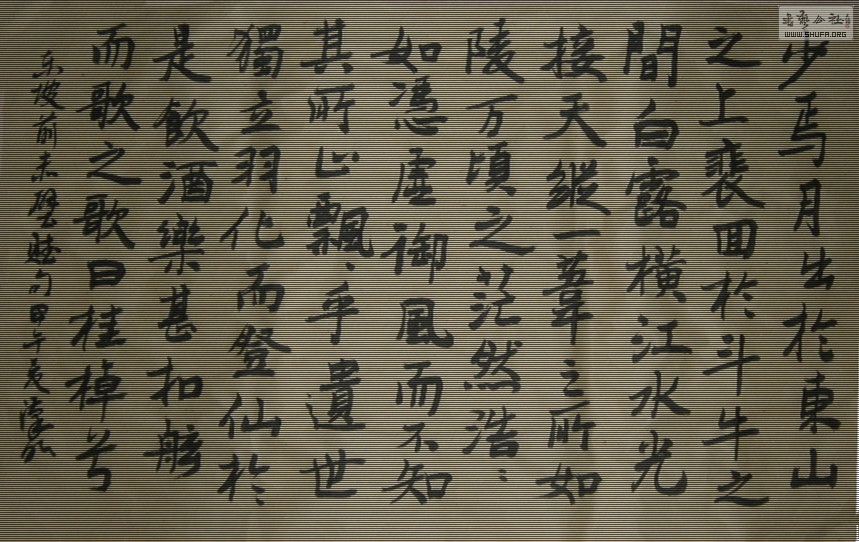 少焉月出於東山
之上裴回於斗牛之
間白露橫江水光
接天縱一葦之所如
陵万頃之茫然浩〻
如憑虛御風而不知
其所止飄〻乎遺世
獨立羽化而登仙於
是飲酒樂甚扣舷
而歌之歌曰桂棹兮
东坡前赤壁赋句甲午夏
书艺公社
WWW.SHUFA.ORG